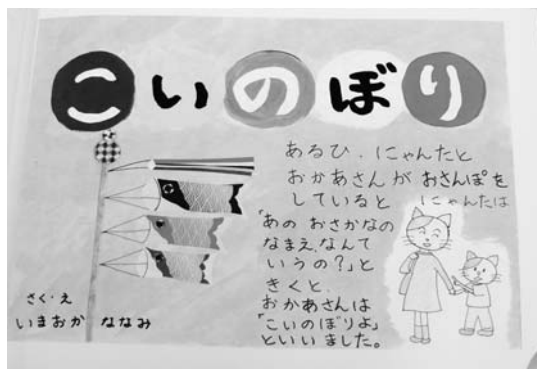 こいのぼり
あるひ、にゃんたと
おかあさんが おさんぽを
していると にゃんたは
「あの おさかなの
なまえ、なんて
いうの?」と
きくと、
おかあさんは
「こいのぼりよ」
といいました。
さく・え
いまおか ななみ